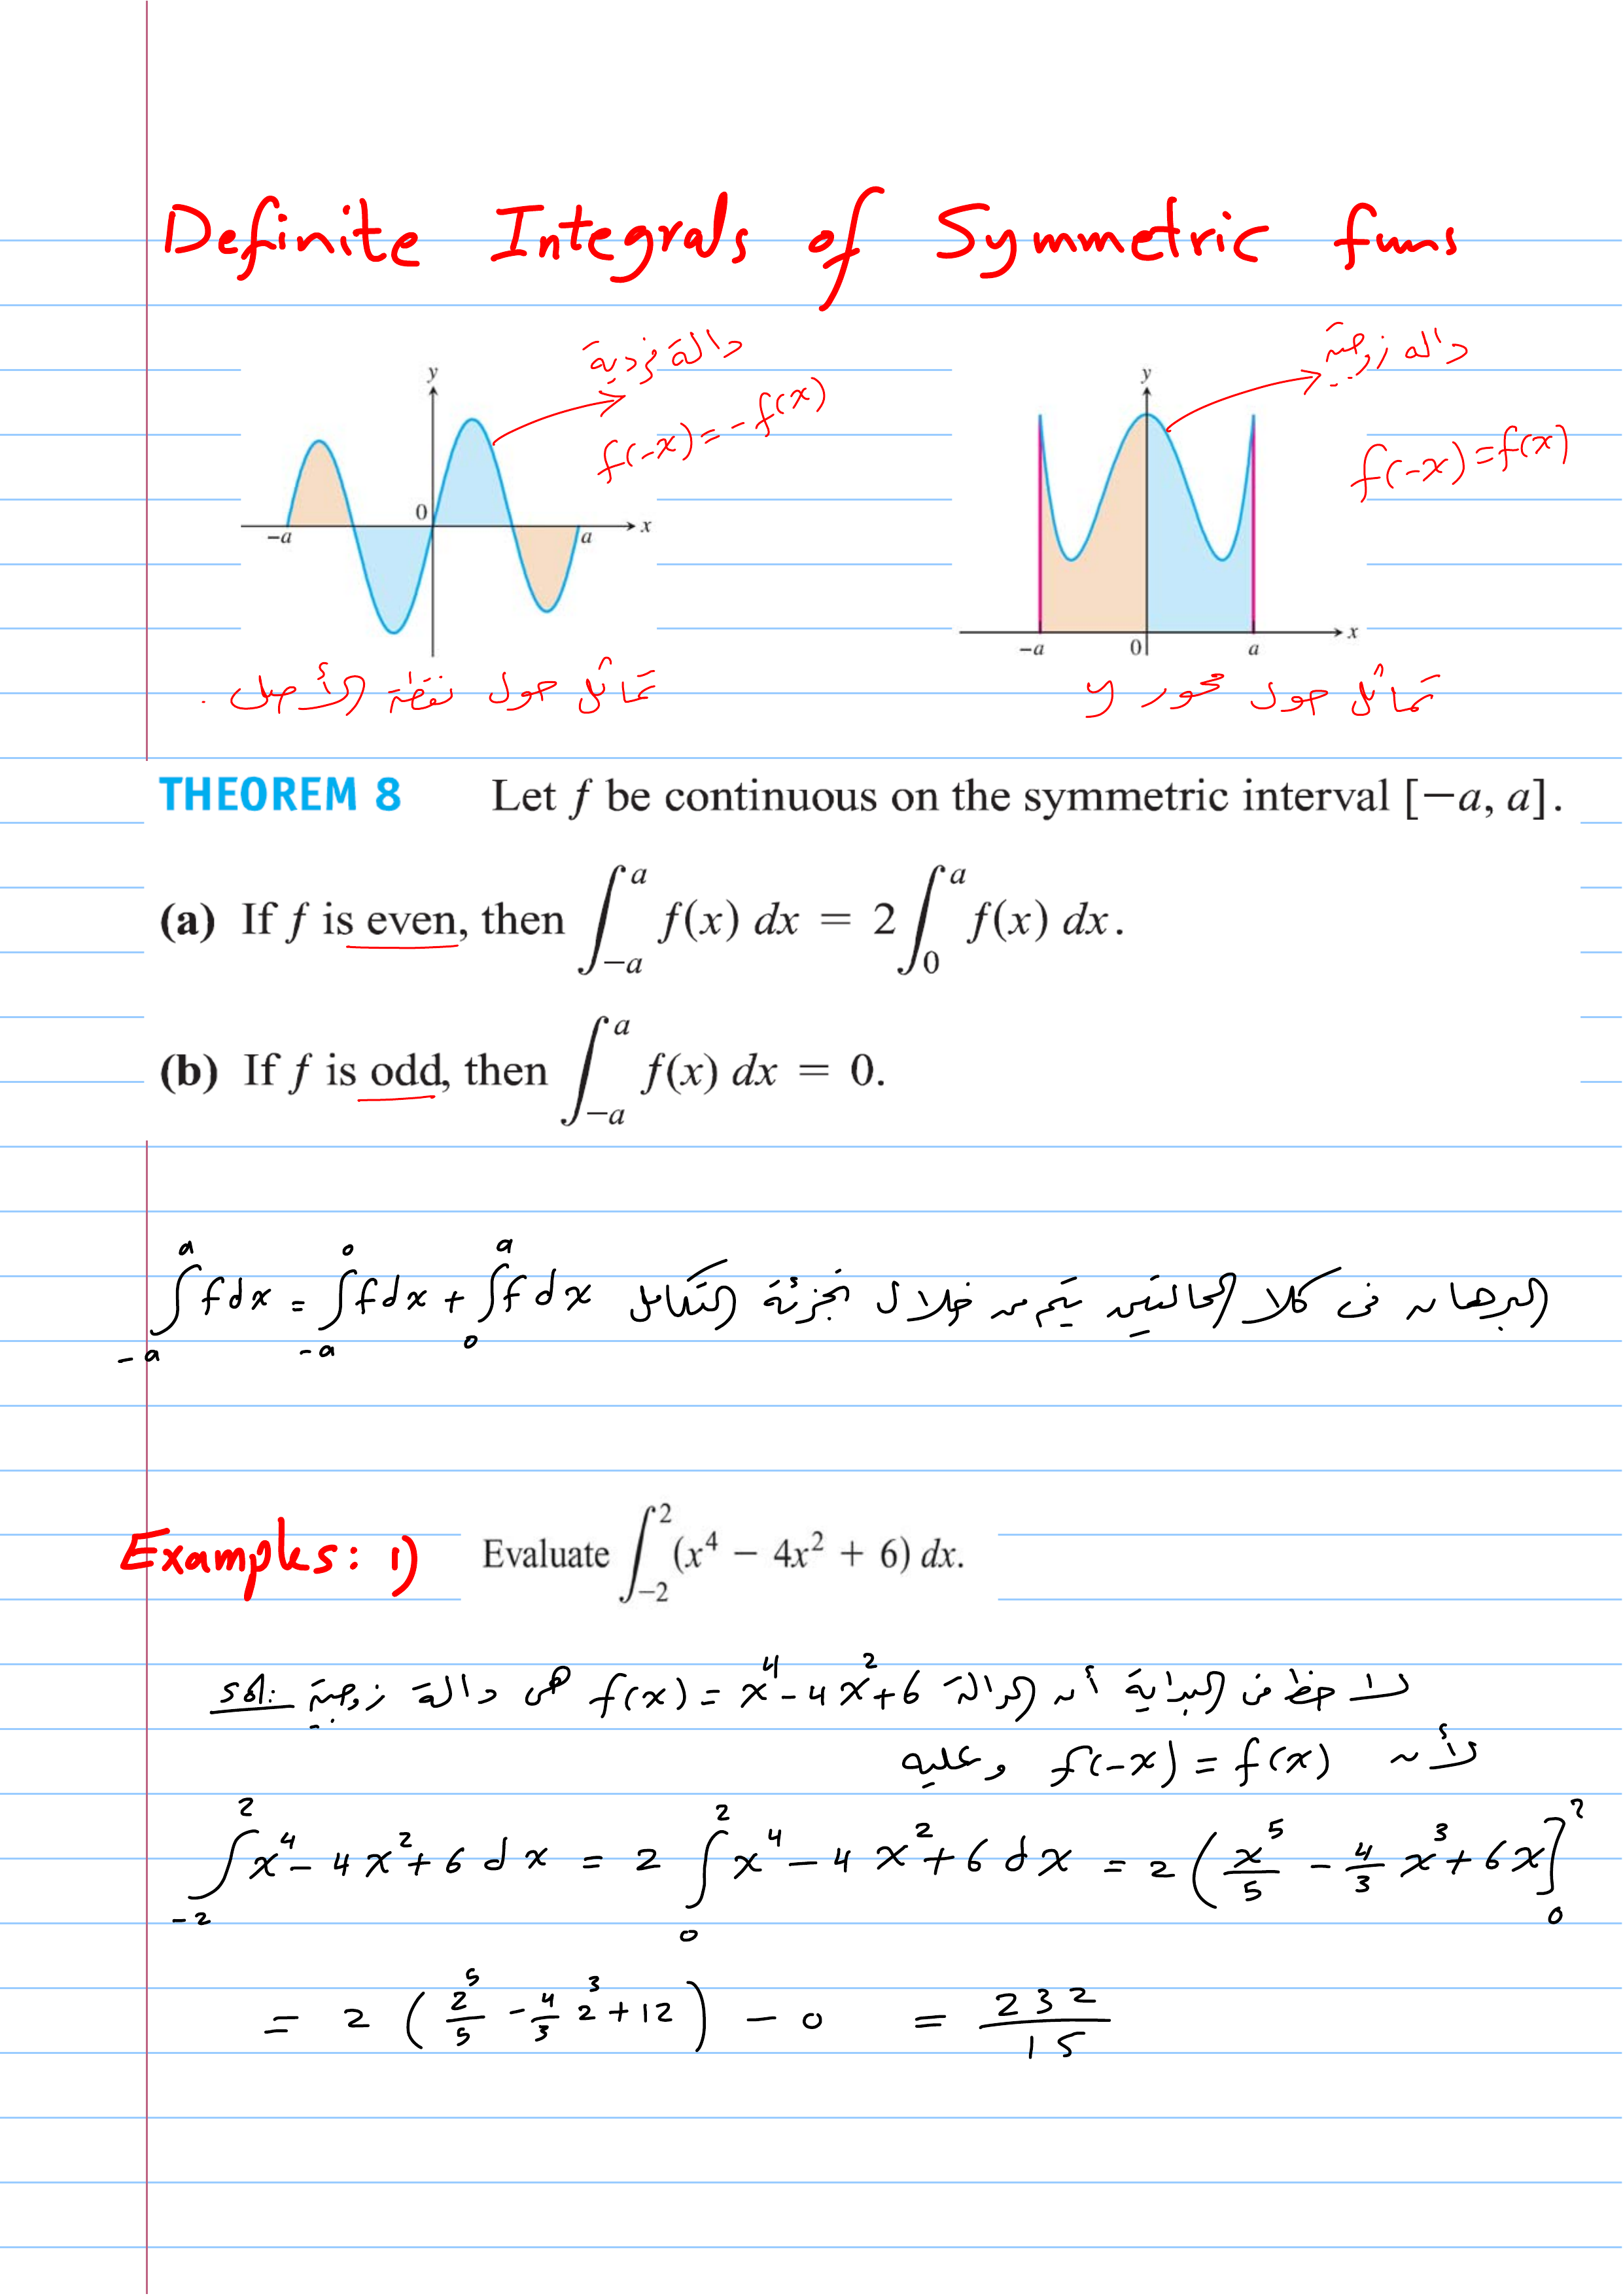 Definite Integrals of Symmetric funs
دالة فردية
f(-x) = -f(x)
y
0
-a
a
x
تماثل حول نقطة الأصل .
دالة زوجية
f(-x) = f(x)
y
-a
0
a
x
تماثل حول محور y
THEOREM 8 Let f be continuous on the symmetric interval [−a, a].
(a) If f is even, then ∫_{−a}^{a} f(x) dx = 2 ∫_{0}^{a} f(x) dx.
(b) If f is odd, then ∫_{−a}^{a} f(x) dx = 0.
البرهان فى كلا الحالتين يتم من خلال تجزئة التكامل ∫_{-a}^{a} f dx = ∫_{-a}^{0} f dx + ∫_{0}^{a} f dx
Examples: 1) Evaluate ∫_{−2}^{2} (x⁴ − 4x² + 6) dx.
sol: لاحظ من البداية أن الدالة f(x) = x⁴ - 4x² + 6 هى دالة زوجية
لأن f(-x) = f(x) وعليه
∫_{-2}^{2} x⁴ - 4x² + 6 dx = 2 ∫_{0}^{2} x⁴ - 4x² + 6 dx = 2 ( x⁵/5 - 4/3 x³ + 6x ]_{0}^{2}
= 2 ( 2⁵/5 - 4/3 2³ + 12 ) - 0 = 232/15